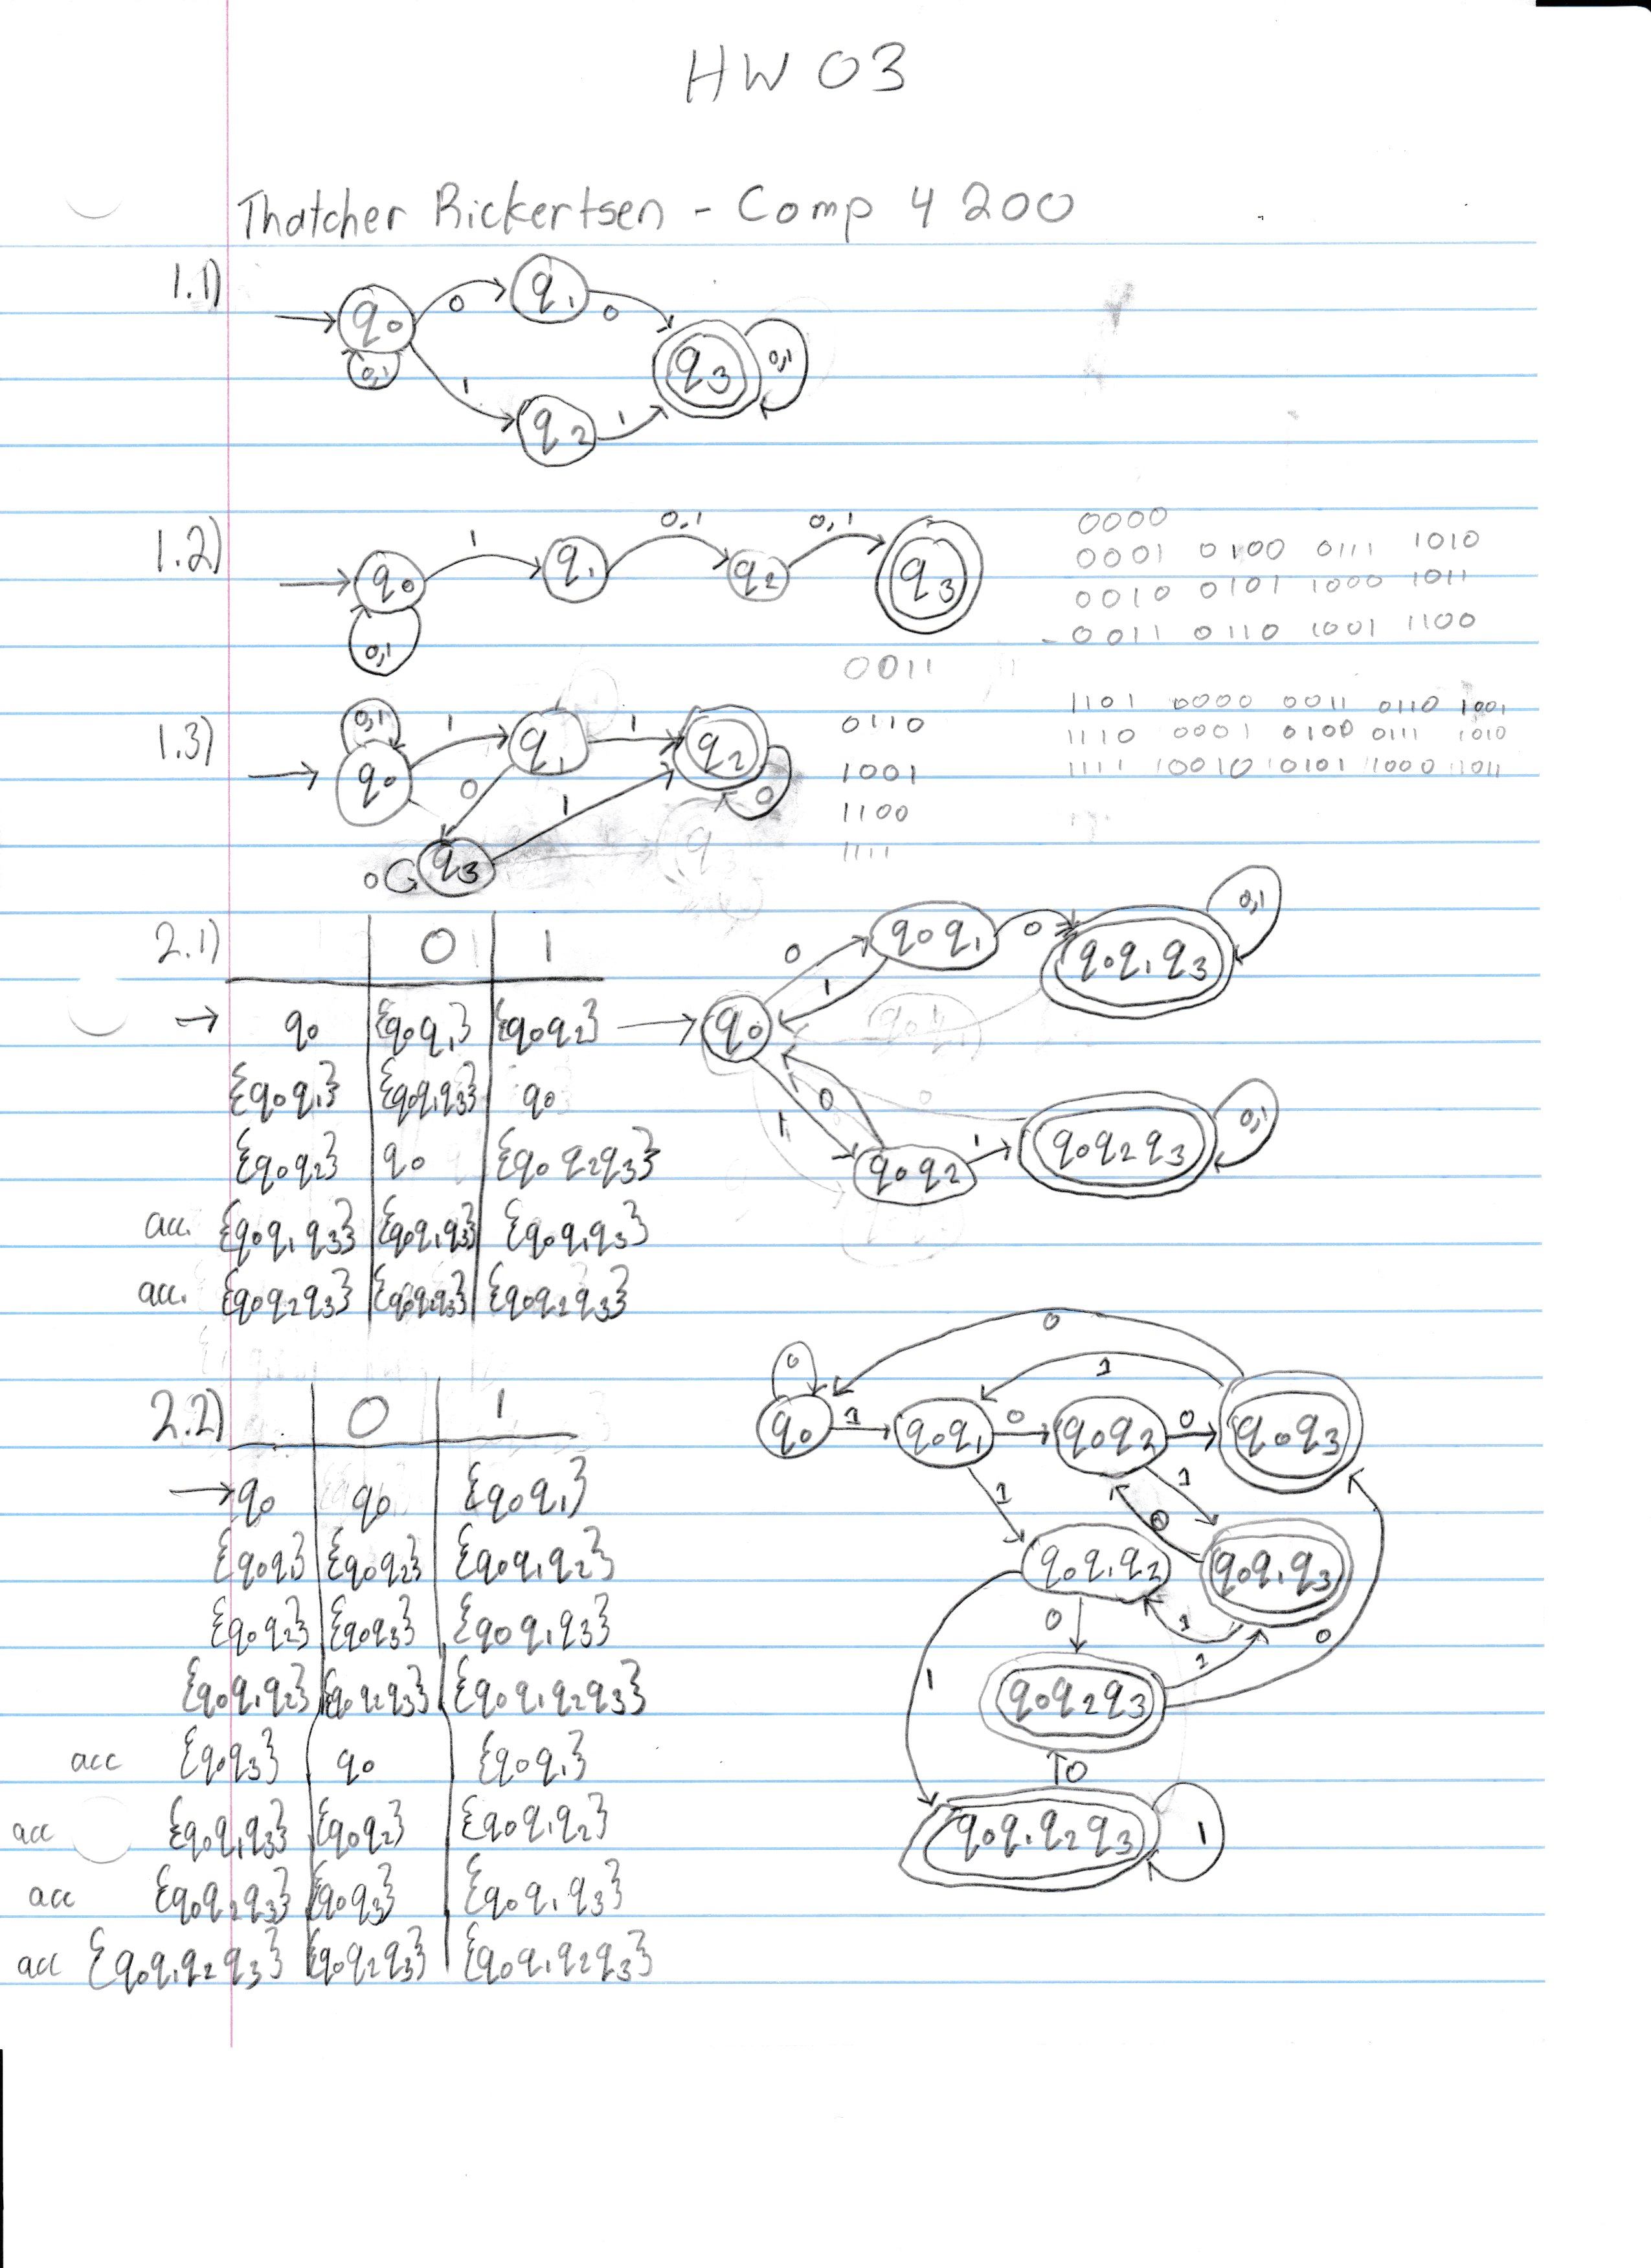 HW 03
Thatcher Rickertsen - Comp 4200
1.1)
q0 0 q1 0 q3 0,1
0,1 1 q2 1
1.2)
q0 1 q1 0,1 q2 0,1 q3
0,1
0000
0001 0100 0111 1010
0010 0101 1000 1011
0011 0110 1001 1100
1101 0000 0011 0110 1001
1110 0001 0100 0111 1010
1111 10010 10101 1000 1011
0011
0110
1001
1100
1111
1.3)
0,1 1 q1 1 q2
q0 0 1 0
0 q3
2.1) 0 1
→ q0 {q0q1} {q0q2}
{q0q1} {q0q1q3} q0
{q0q2} q0 {q0q2q3}
acc. {q0q1q3} {q0q1q3} {q0q1q3}
acc. {q0q2q3} {q0q2q3} {q0q2q3}
0 q0q1 0 q0q1q3 0,1
q0 1
1 0 q0q2 1 q0q2q3 0,1
2.2) 0 1
→ q0 q0 {q0q1}
{q0q1} {q0q2} {q0q1q2}
{q0q2} {q0q3} {q0q1q3}
{q0q1q2} {q0q2q3} {q0q1q2q3}
acc {q0q3} q0 {q0q1}
acc {q0q1q3} {q0q2} {q0q1q2}
acc {q0q2q3} {q0q3} {q0q1q3}
acc {q0q1q2q3} {q0q2q3} {q0q1q2q3}
0
0 1
q0 1 q0q1 0 q0q2 0 q0q3
1 1
0
q0q1q2 q0q1q3
0 1 0
1 q0q2q3 1
0
q0q1q2q3 1